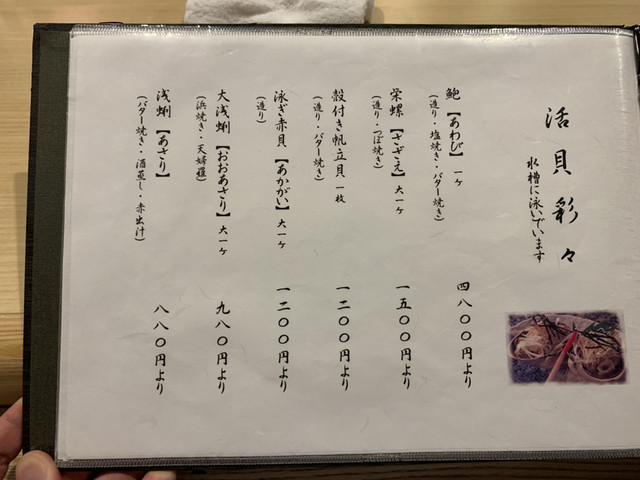 活貝彩々
水槽に泳いでいます
鮑【あわび】 一ヶ 四八〇〇円より
(造り・塩焼き・バター焼き)
栄螺【さざえ】 大一ヶ 一五〇〇円より
(造り・つぼ焼き)
殻付き帆立貝 一枚 一二〇〇円より
(造り・バター焼き)
泳ぎ赤貝【あかがい】 大一ヶ 一二〇〇円より
(造り)
大浅蜊【おおあさり】 大一ヶ 九八〇円より
(浜焼き・天婦羅)
浅蜊【あさり】 八八〇円より
(バター焼き・酒蒸し・赤出汁)